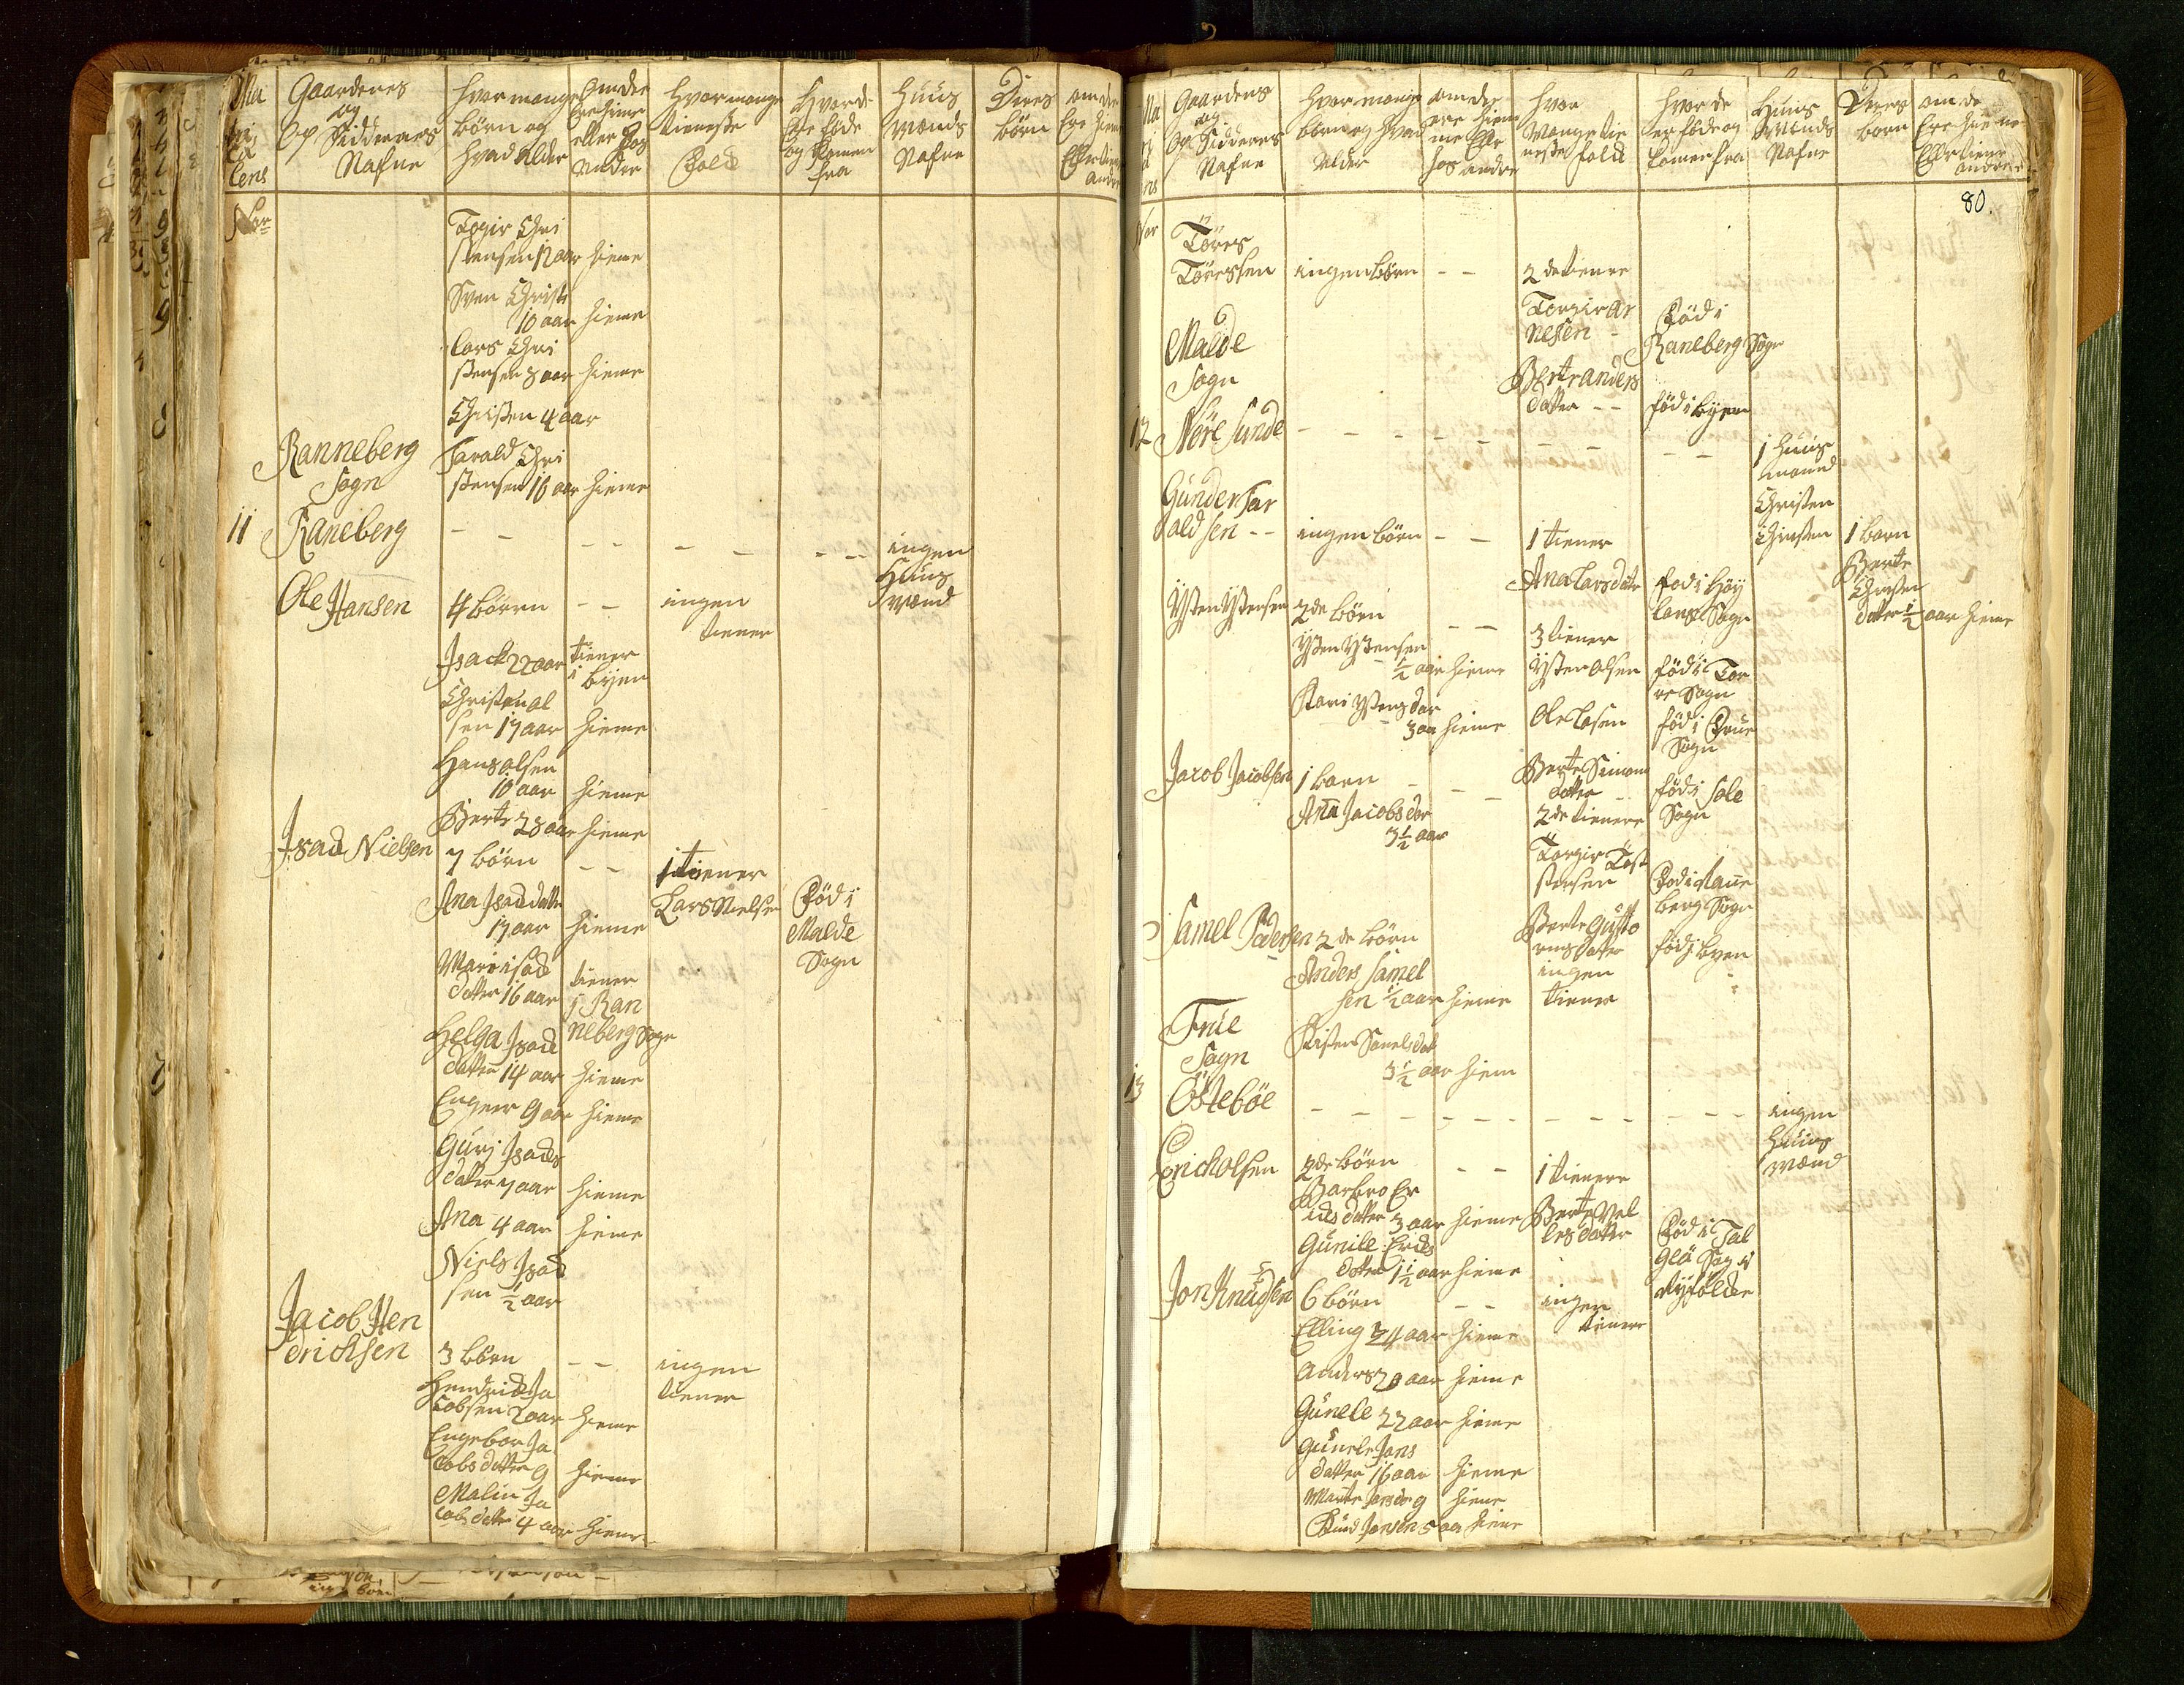 Gaardenes
og
Op Siddernes
Nafne
hvor mange
börn og
hvad Alder
Om de
Ere hieme
eller hos
andre
hvor mange
tieneste
Folck
Hvor de
Ere föde
og komen
fra
Huus
Mænds
Nafne
Deres
börn
om de
Ere hieme
Eller tiene
andre
No
Torgir Chri
stensen 12 aar hieme
Sven Christ
10 aar hieme
Lars Chri
stensen 8 aar hieme
Christen 4 aar
Ranneberg
Sogn
Harald Chri
stensen 16 aar hieme
11 Raneberg - - - - - - - - ingen
Huus
Mænd
Ole Hansen 4 börn - - ingen
tiener
Isack 22 aar tiener
i byen
Christen ol
sen 17 aar hieme
Hans olsen
10 aar hieme
Berte 28 aar hieme
Isack Nielsen 7 börn - - 1 tiener
Ana Isacks datter
17 aar hieme
Lars Nielsen Föd i
Malde
Sogn
Mari Isack
datter 16 aar tiener
i Ran
neberg Sogn
Helga Isack
datter 14 aar hieme
Enger 9 aar hieme
Guri Isacks
datter 7 aar hieme
Ana 4 aar hieme
Niels Isack
sen 1/2 aar
Jacob Hen
dricksen 3 börn - - ingen
tiener
Hendrick Ja
cobsen 2 aar hieme
Engebor Ja
cobs datter 9 hieme
Malin Ja
cobs datter 4 aar hieme
Gaardens
og
Op Sidderes
Nafne
hvor mange
börn og hvad
Alder
om de
ere hiem
me Eller
hos andre
hvor
mange tie
neste folck
hvor de
er föde og
komer fra
Huus
Mænds
Nafne
Deres
börn
om de
Ere hieme
Eller tiene
andre
80.
No
Töres
Töressen ingen börn - - 2 de tienere
Torgir Ar
nesen - Föd i
Raneberg Sogn
Malde
Sogn
Berte anders
datter - - föd i byen
12 Nöre Sunde - - - - - - - - - - 1 Huus
mand
Christen
Christen 1 barn
Berte
Christen
datter 1/2 aar hieme
Gunder Har
aldsen - - ingen börn - - 1 tiener
Ana Lars datter föd i Höy
land Sogn
Ysten Ystensen 2 de börn - - 3 tiener
Ysten Ystensen
1/2 aar hieme
Ysten olsen föd i Tor
re Sogn
Kari Ystens dar
3 aar hieme
Ole Lasen föd i Frue
Sogn
Jacob Jacobsen 1 barn - - -
Berte Simons
datter - föd i Sole
Sogn
Ana Jacobs dar
3 1/2 aar
2 de tienere
Torgir Töst
stensen Föd i Rane
berg Sogn
Samel Pedersen 2 de börn
Berte Gutto
rms datter föd i byen
Anders Samel
sen 1/2 aar hieme
ingen
tiener
Frue
Sogn
Kisten Samels dat
3 1/2 aar hiem
13 Östeböe - - - - - - - - - - ingen
Huus
mænd
Erich olsen 2 de börn - - 1 tienere
Barbro Er
ichs datter 3 aar hieme
Berte Nel
les datter Föd i Tal
geö Sogn i
Ryfölcke
Gunile Erichs
datter 1 1/2 aar hieme
Jon Knudsen 6 börn - - ingen
tienere
Elling 24 aar hieme
Anders 20 aar hieme
Gunele 22 aar hieme
Gunele Jons
datter 16 aar hieme
Marte Jons dr 9 hieme
Knud Jonsen 5 aar hieme